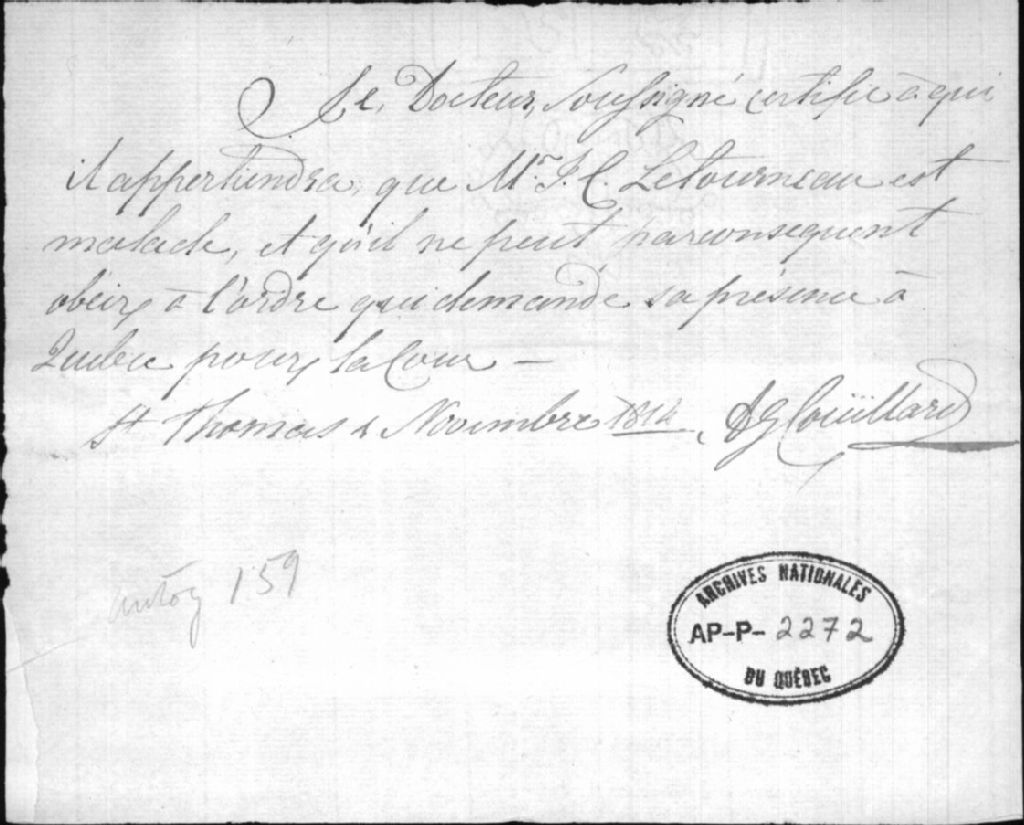 Le Docteur Soussigné certifie à qui
il appertiendra, que Mr. J. C. Letourneau est
malade, et qu'il ne peut par consequent
obéir à l'ordre qui demande sa présence à
Quebec pour la Cour —
St Thomas 4 Novembre 1814 AG Coüillard
159
ARCHIVES NATIONALES
AP-P-2272
DU QUÉBEC